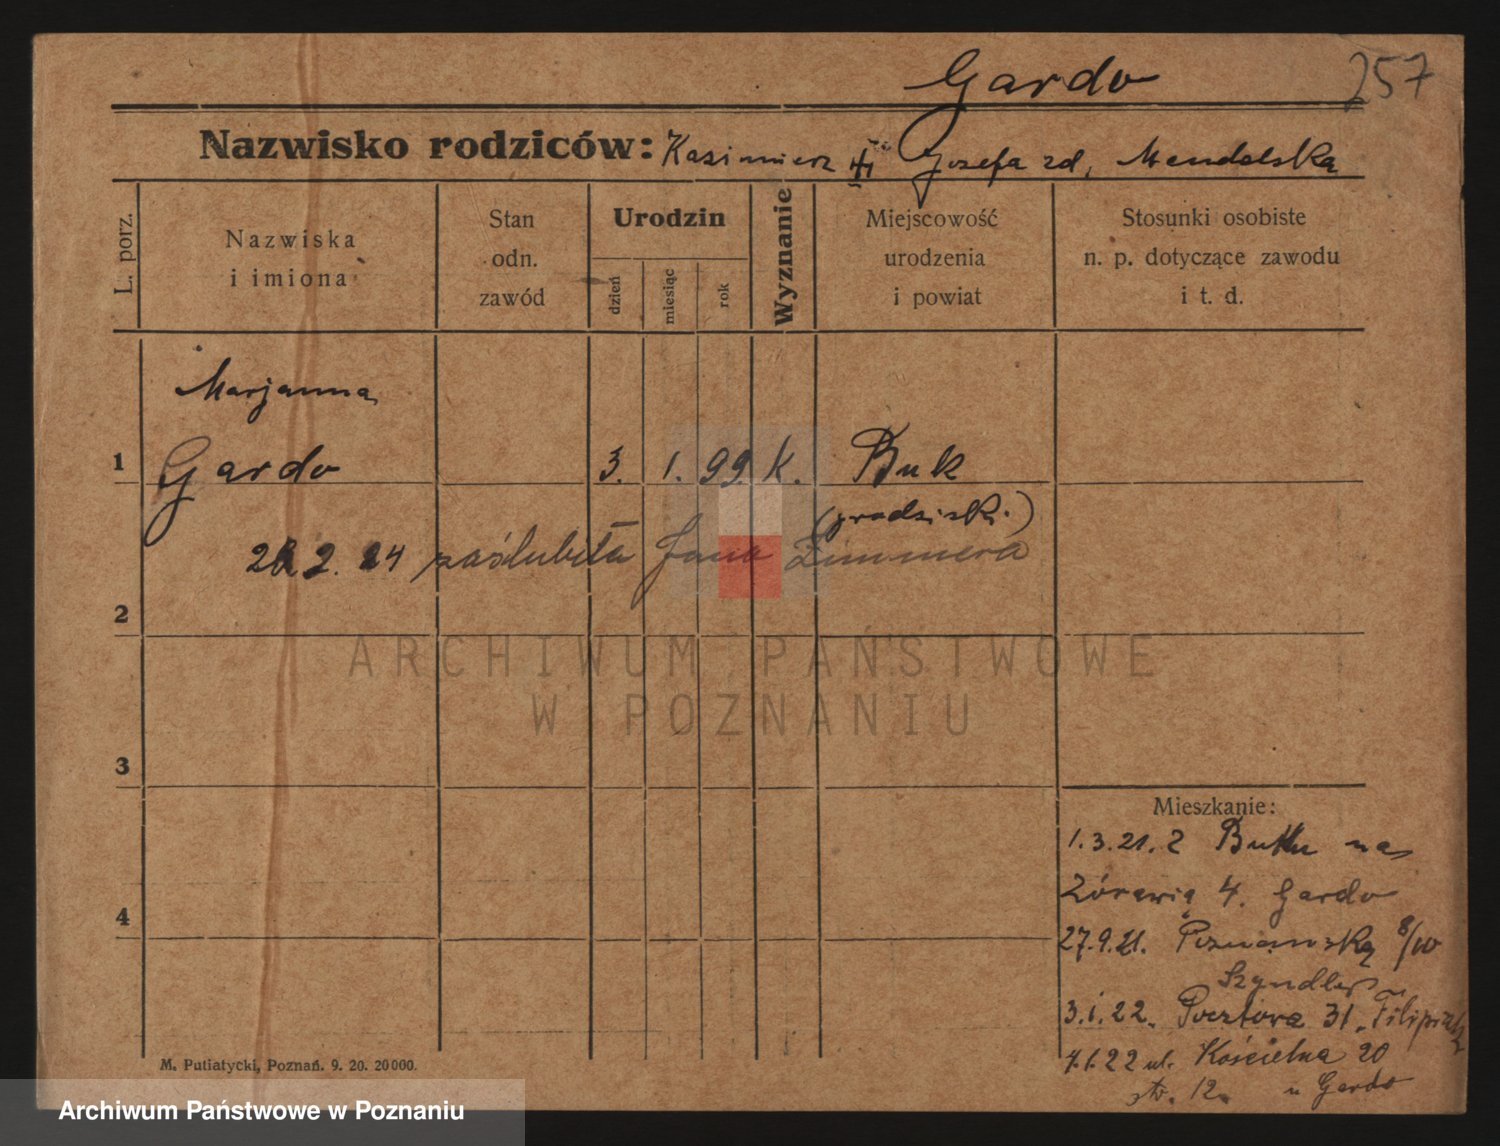 Gardo 257
Nazwisko rodziców: Kasimierz Jozefa zd. Mendelska
L. porz.
Nazwiska
i imiona
Stan
odn.
zawód
Urodzin
dzień
miesiąc
rok
Wyznanie
Miejscowość
urodzenia
i powiat
Stosunki osobiste
n. p. dotyczące zawodu
i t. d.
Marjanna
1 Gardo 3. 1. 99. K. Buk
(grodzisk.)
2. 24 zaślubiła Jana Zimmera
2
ARCHIWUM PAŃSTWOWE
W POZNANIU
3
Mieszkanie:
1.3.21. z Buku na
Żórawią 4. Gardo
4
27.9.21. Poznańską 8/10
3.1.22. Pocztowa 31.
4.1.22 ul. Kościelna 20
12. u Gardo
M. Putiatycki, Poznań. 9. 20. 20000.
Archiwum Państwowe w Poznaniu